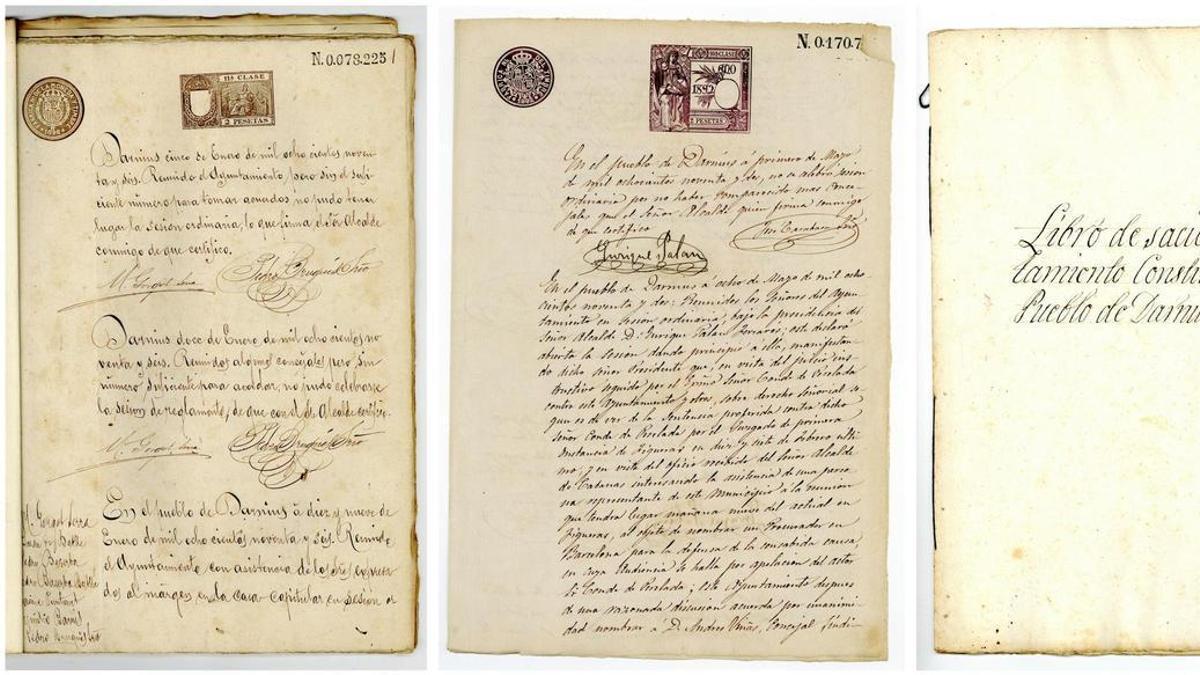 N.0.078.225
11ª CLASE
2 PESETAS
Darnius cinco de Enero de mil ocho cientos noven-
ta y seis. Reunido el Ayuntamiento, pero sin el sufi-
ciente número para tomar acuerdos no pudo tener
lugar la sesión ordinaria, lo que firma el Sr. Alcalde
conmigo de que certifico.
M. Gorgot Serra
Pedro Brugués Srio
Darnius doce de Enero de mil ocho cientos no-
venta y seis. Reunidos algunos concejales pero sin
número suficiente para acordar, no pudo celebrarse
la sesión de reglamento, de que con el Sr. Alcalde certifico.
M. Gorgot Serra
Pedro Brugués Srio
En el pueblo de Darnius á diez y nueve de
Enero de mil ocho cientos noventa y seis. Reunido
el Ayuntamiento con asistencia de los Sres. expresa-
dos al margen en la casa capitular en sesión or
M. Gorgot Serra
Pedro Brugués Srio
N. 0.170.7
10ª CLASE
AÑO
1892
2 PESETAS
En el pueblo de Darnius á primero de Mayo
de mil ochocientos noventa y dos, no se celebró sesión
ordinaria por no haber comparecido mas conce-
jales que el Señor Alcalde quien firma conmigo
de que certifico
Enrique Palau
En el pueblo de Darnius á ocho de Mayo de mil ocho-
cientos noventa y dos: Reunidos los Señores del Ayun-
tamiento en sesión ordinaria, bajo la presidencia del
Señor Alcalde D. Enrique Palau Forcares; este declaró
abierta la sesión dando principio á ella, manifestan-
do dicho señor Presidente que, en vista del juicio ins-
tructivo seguido por el Exmo Señor Conde de Perelada
contra este Ayuntamiento y otros, sobre derecho señorial se-
gun es de ver de la sentencia proferida contra dicho
Señor Conde de Perelada por el Juzgado de primera
instancia de Figueras en diez y siete de Febrero ulti-
mo, y en vista del oficio recibido del Señor Alcalde
de Cabanas interesando la asistencia de una perso-
na representante de este Municipio á la reunion
que tendrá lugar mañana nueve del actual en
Figueras, al objeto de nombrar un Procurador en
Barcelona para la defensa de la consabida causa,
en cuya Audiencia se halla por apelacion del actor
Sr. Conde de Perelada; este Ayuntamiento despues
de una razonada discusion acuerda por unanimi-
dad nombrar á D. Andres Viñas, Concejal Síndi-
Libro de
tamiento
Pueblo de